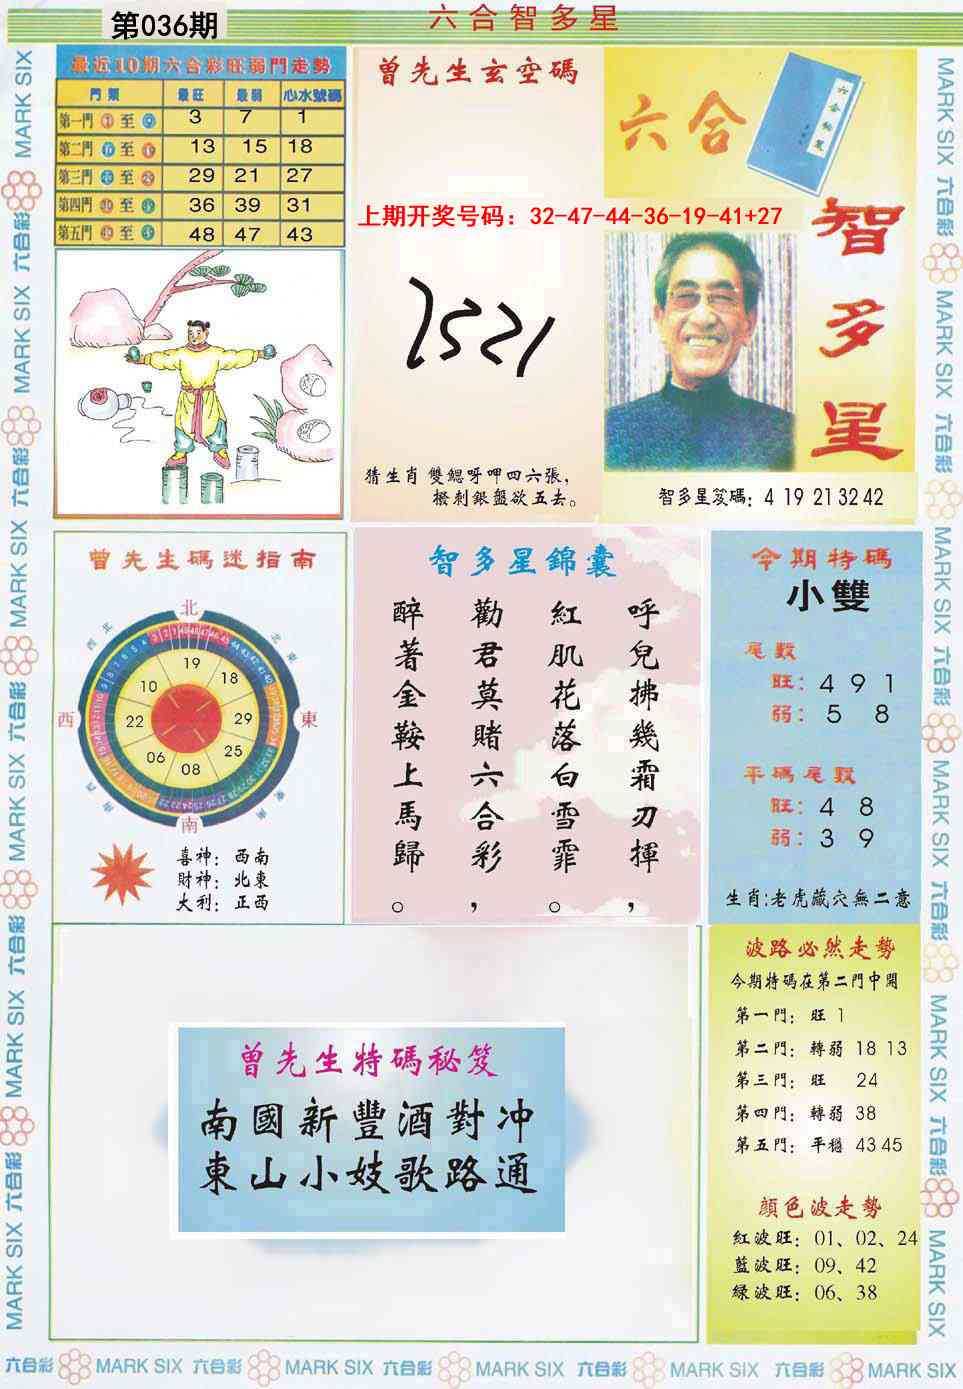 第036期
六合智多星
最近10期六合彩旺弱門走勢
門類 最旺 最弱 心水號碼
第一門 至 3 7 1
第二門 至 13 15 18
第三門 至 29 21 27
第四門 至 36 39 31
第五門 至 48 47 43
曾先生玄空碼
上期开奖号码：32-47-44-36-19-41+27
猜生肖 雙鰓呀呷四六張，
撥刺銀盤欲五去。
六合
智多星
智多星笈碼：4 19 21 32 42
曾先生碼迷指南
北
西北
東北
19
18
10
西
22
29
東
06
25
08
西南
東南
南
喜神：西南
財神：北東
大利：正西
智多星錦囊
呼兒拂幾霜刃揮，
紅肌花落白雪霏。
勸君莫賭六合彩，
醉著金鞍上馬歸。
今期特碼
小雙
尾數
旺：4 9 1
弱：5 8
平碼尾數
旺：4 8
弱：3 9
生肖：老虎藏穴無二意
曾先生特碼秘笈
南國新豐酒對冲
東山小妓歌路通
波路必然走勢
今期特碼在第二門中開
第一門：旺 1
第二門：轉弱 18 13
第三門：旺 24
第四門：轉弱 38
第五門：平穩 43 45
顔色波走勢
紅波旺：01、02、24
藍波旺：09、42
綠波旺：06、38
六合彩 MARK SIX 六合彩 MARK SIX 六合彩 MARK SIX 六合彩 MARK SIX 六合彩 MARK SIX